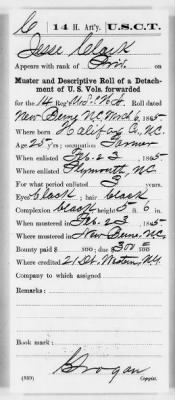 C | 14 H. Art'y. | U.S.C.T.
Jesse Clark
Appears with rank of Priv. on
Muster and Descriptive Roll of a Detach-
ment of U. S. Vols. forwarded
for the 14 Reg't Roll dated
New Berne N.C. Mch 6, 1865
Where born Halifax Co, N.C.
Age 25 y'rs; occupation Farmer
When enlisted Feb. 23, 1865
Where enlisted Plymouth, N.C.
For what period enlisted 3 years
Eyes black; hair black
Complexion black; height 5 ft. 6 in.
When mustered in Feb 23, 1865
Where mustered in New Berne, N.C.
Bounty paid $ 100; due $ 300 100
Where credited 21 Dist. Western, N.Y.
Company to which assigned
Remarks:
Book mark:
Grogan
(339) Copyist.